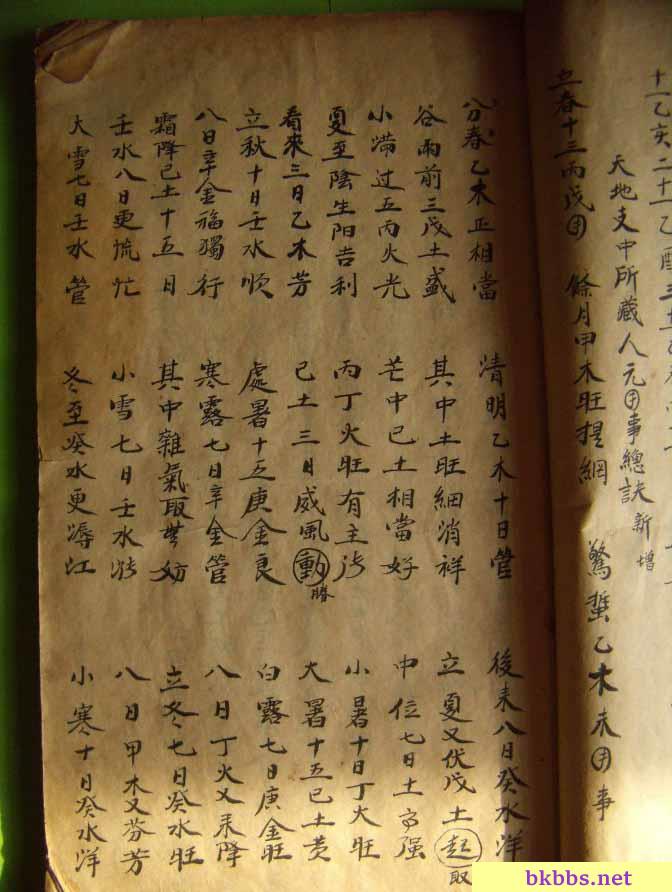 十一乙亥二十一乙酉三十
天地支中所藏人元用事總訣 新增
立春十三丙戊用 餘月甲木旺提綱 驚蟄乙木未用事
分春乙木正相當 清明乙木十日管 後来八日癸水洋
谷雨前三戊土盛 其中土旺細消祥 立夏又伏戊土起 取
小滿过五丙火光 芒中己土相當好 中位七日土高强
夏至陰生阳吉利 丙丁火旺有主 小暑十日丁火旺
看來三日乙木芳 己土三日威風動 勝 大暑十五己土黄
立秋十日壬水順 處暑十五庚金良 白露七日庚金旺
八日辛金福獨行 寒露七日辛金管 八日丁火又来降
霜降己土十五日 其中雜氣取無妨 立冬七日癸水旺
壬水八日更慌忙 小雪七日壬水 八日甲木又芬芳
大雪七日壬水管 冬至癸水更潯江 小寒十日癸水洋
bkbbs.net